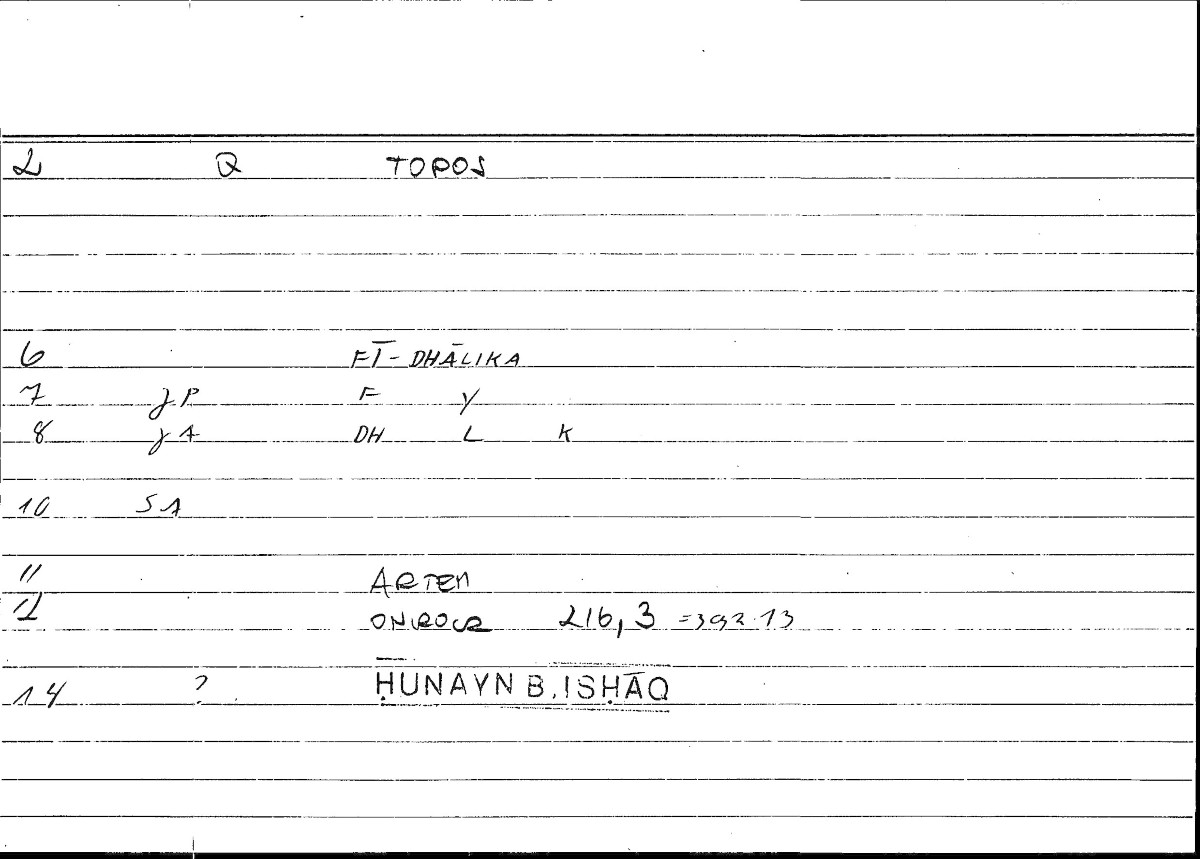 2 Q TOPOS
6 FĪ-DHĀLIKA
7 JP F Y
8 JA DH L K
10 SA
11 ARTEM
12 ONIROCR 216,3 =392.13
14 ? ḤUNAYN B. ISḤĀQ